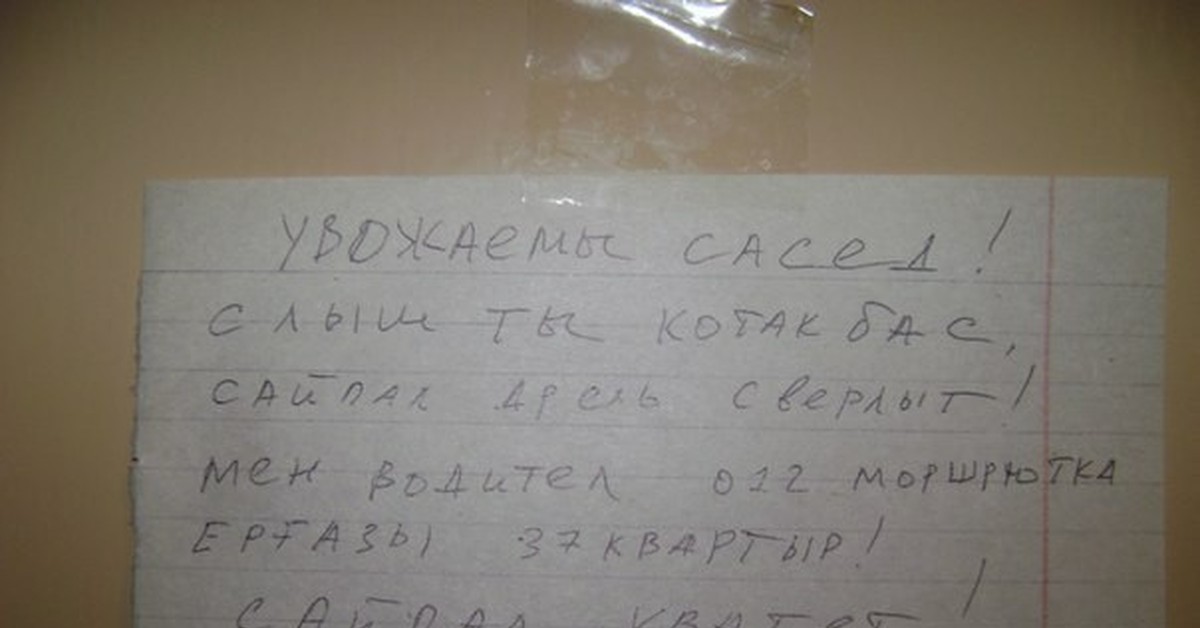 УВОЖАЕМЫ САСЕД!
СЛЫШ ТЫ КОТАКБАС,
САЙПАЛ ДРЕЛЬ СВЕРЛЫТ!
МЕН ВОДИТЕЛ 012 МОРШРЮТКА
ЕРҒАЗЫ 37 КВАРТЫР!
САЙПАЛ ХВАТЕТ!